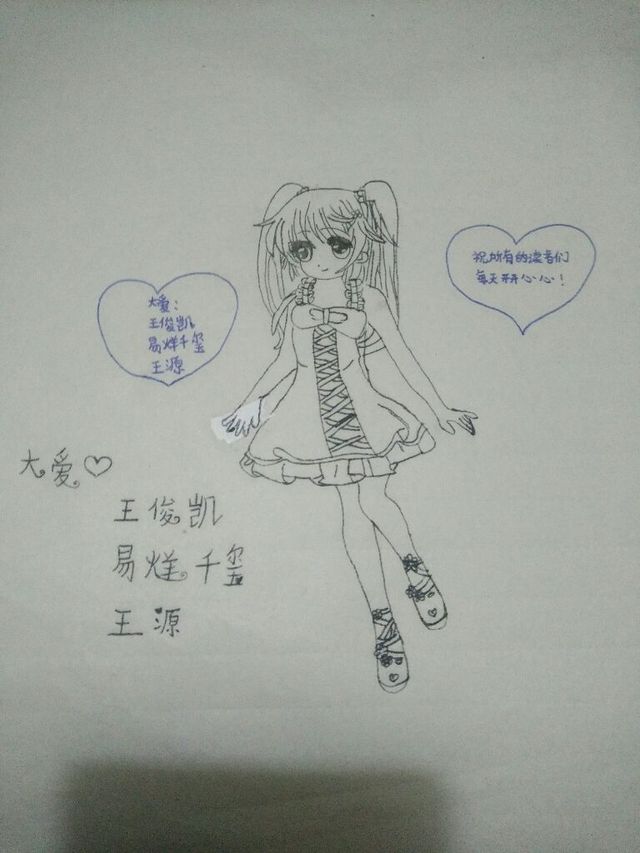 大爱：
王俊凯
易烊千玺
王源
祝所有的读者们
每天开开心心！
大爱♡
王俊凯
易烊千玺
王源